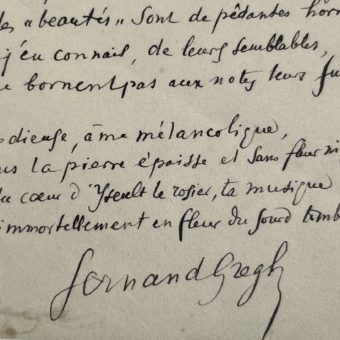 es « beautés » sont de pédantes horr
j'en connais, de leurs semblables,
e bornent pas aux notes leurs fu
dieuse, âme mélancolique,
us la pierre épaisse et sans fleur ni
du cœur d'Yseult le rosier, ta musique
immortellement en fleur du sourd tomb
Fernand Gregh